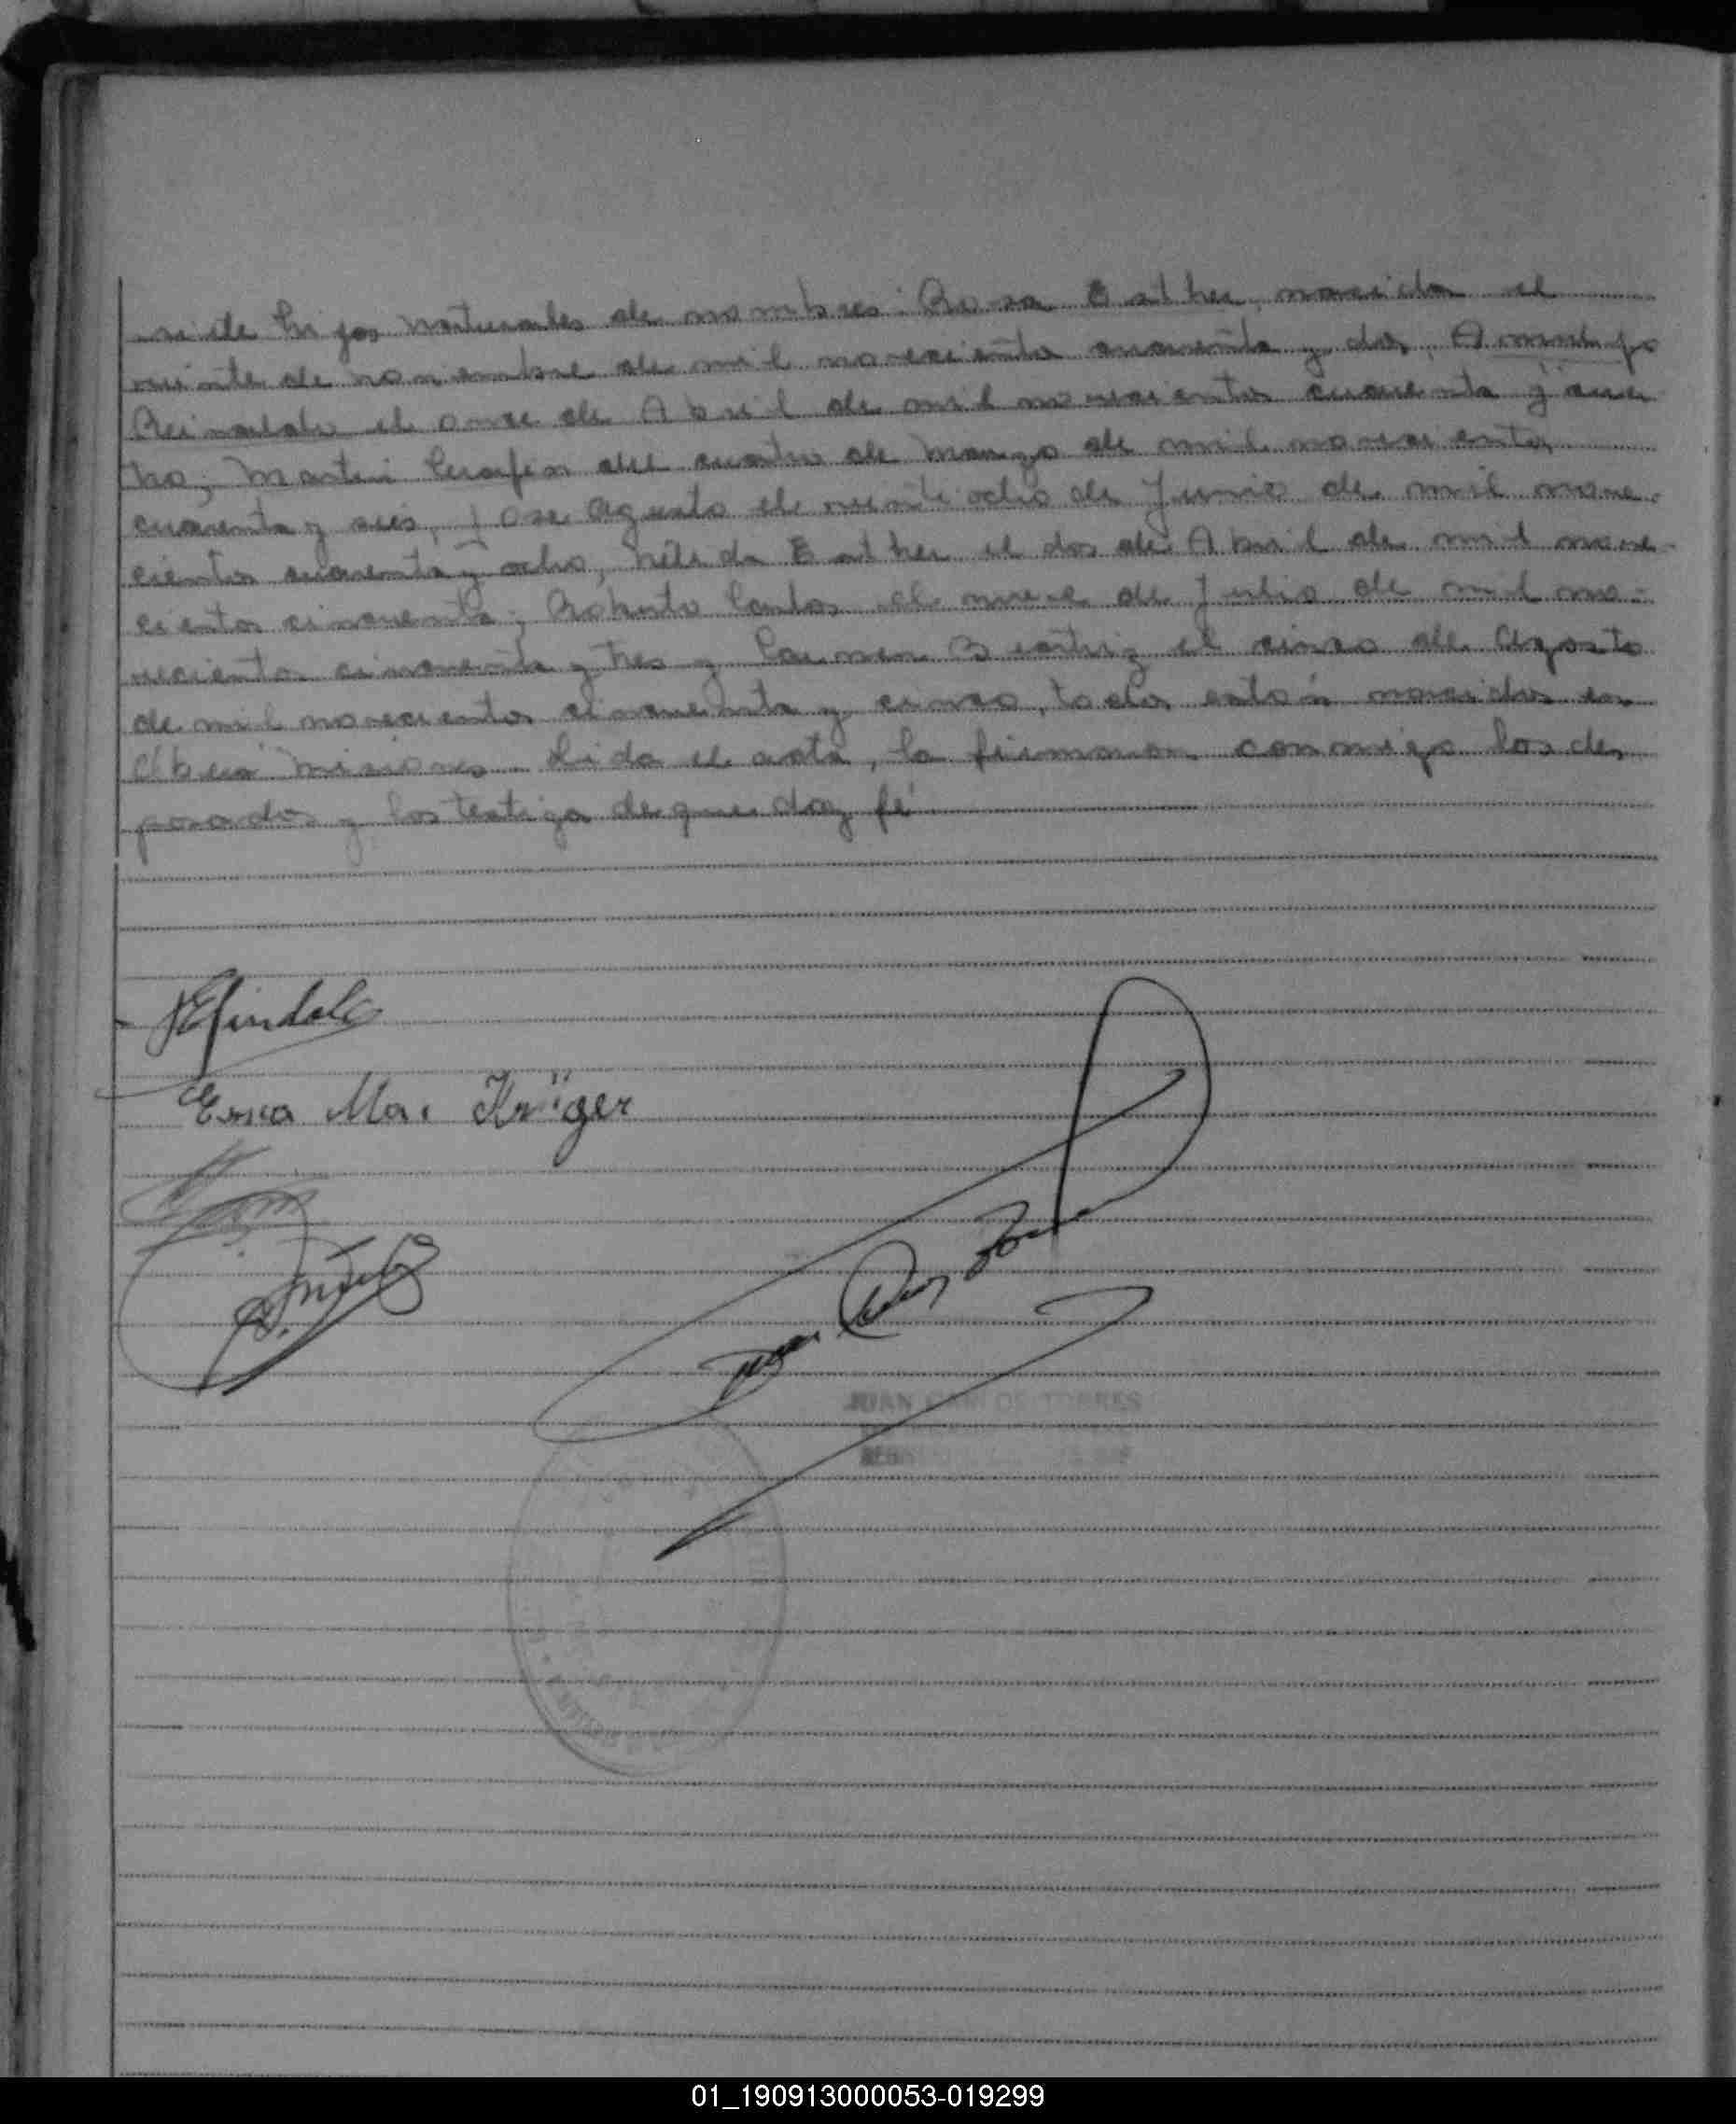 siete hijos naturales de nombres: Rosa Esther, nacida el
veinte de noviembre de mil novecientos cuarenta y dos,
Reinaldo el once de Abril de mil novecientos cuarenta y cua
tro; Martin Serafin del cuatro de Marzo de mil novecientos
cuarenta y seis, Jose Agusto el veinte ocho de Junio de mil nove-
cientos cuarenta y ocho, Nélida Esther el dos de Abril de mil nove-
cientos cincuenta; Roberto Carlos el nueve de Julio de mil no-
vecientos cincuenta y tres y Carmen Beatriz el cinco de Agosto
de mil novecientos cincuenta y cinco, todos están nacidos en
Oberá Misiones. Lida el acta, la firmaron conmigo los des
posados y los testigos de que doy fé.
Erna Mar. Krüger
JUAN TORRES
01_190913000053-019299